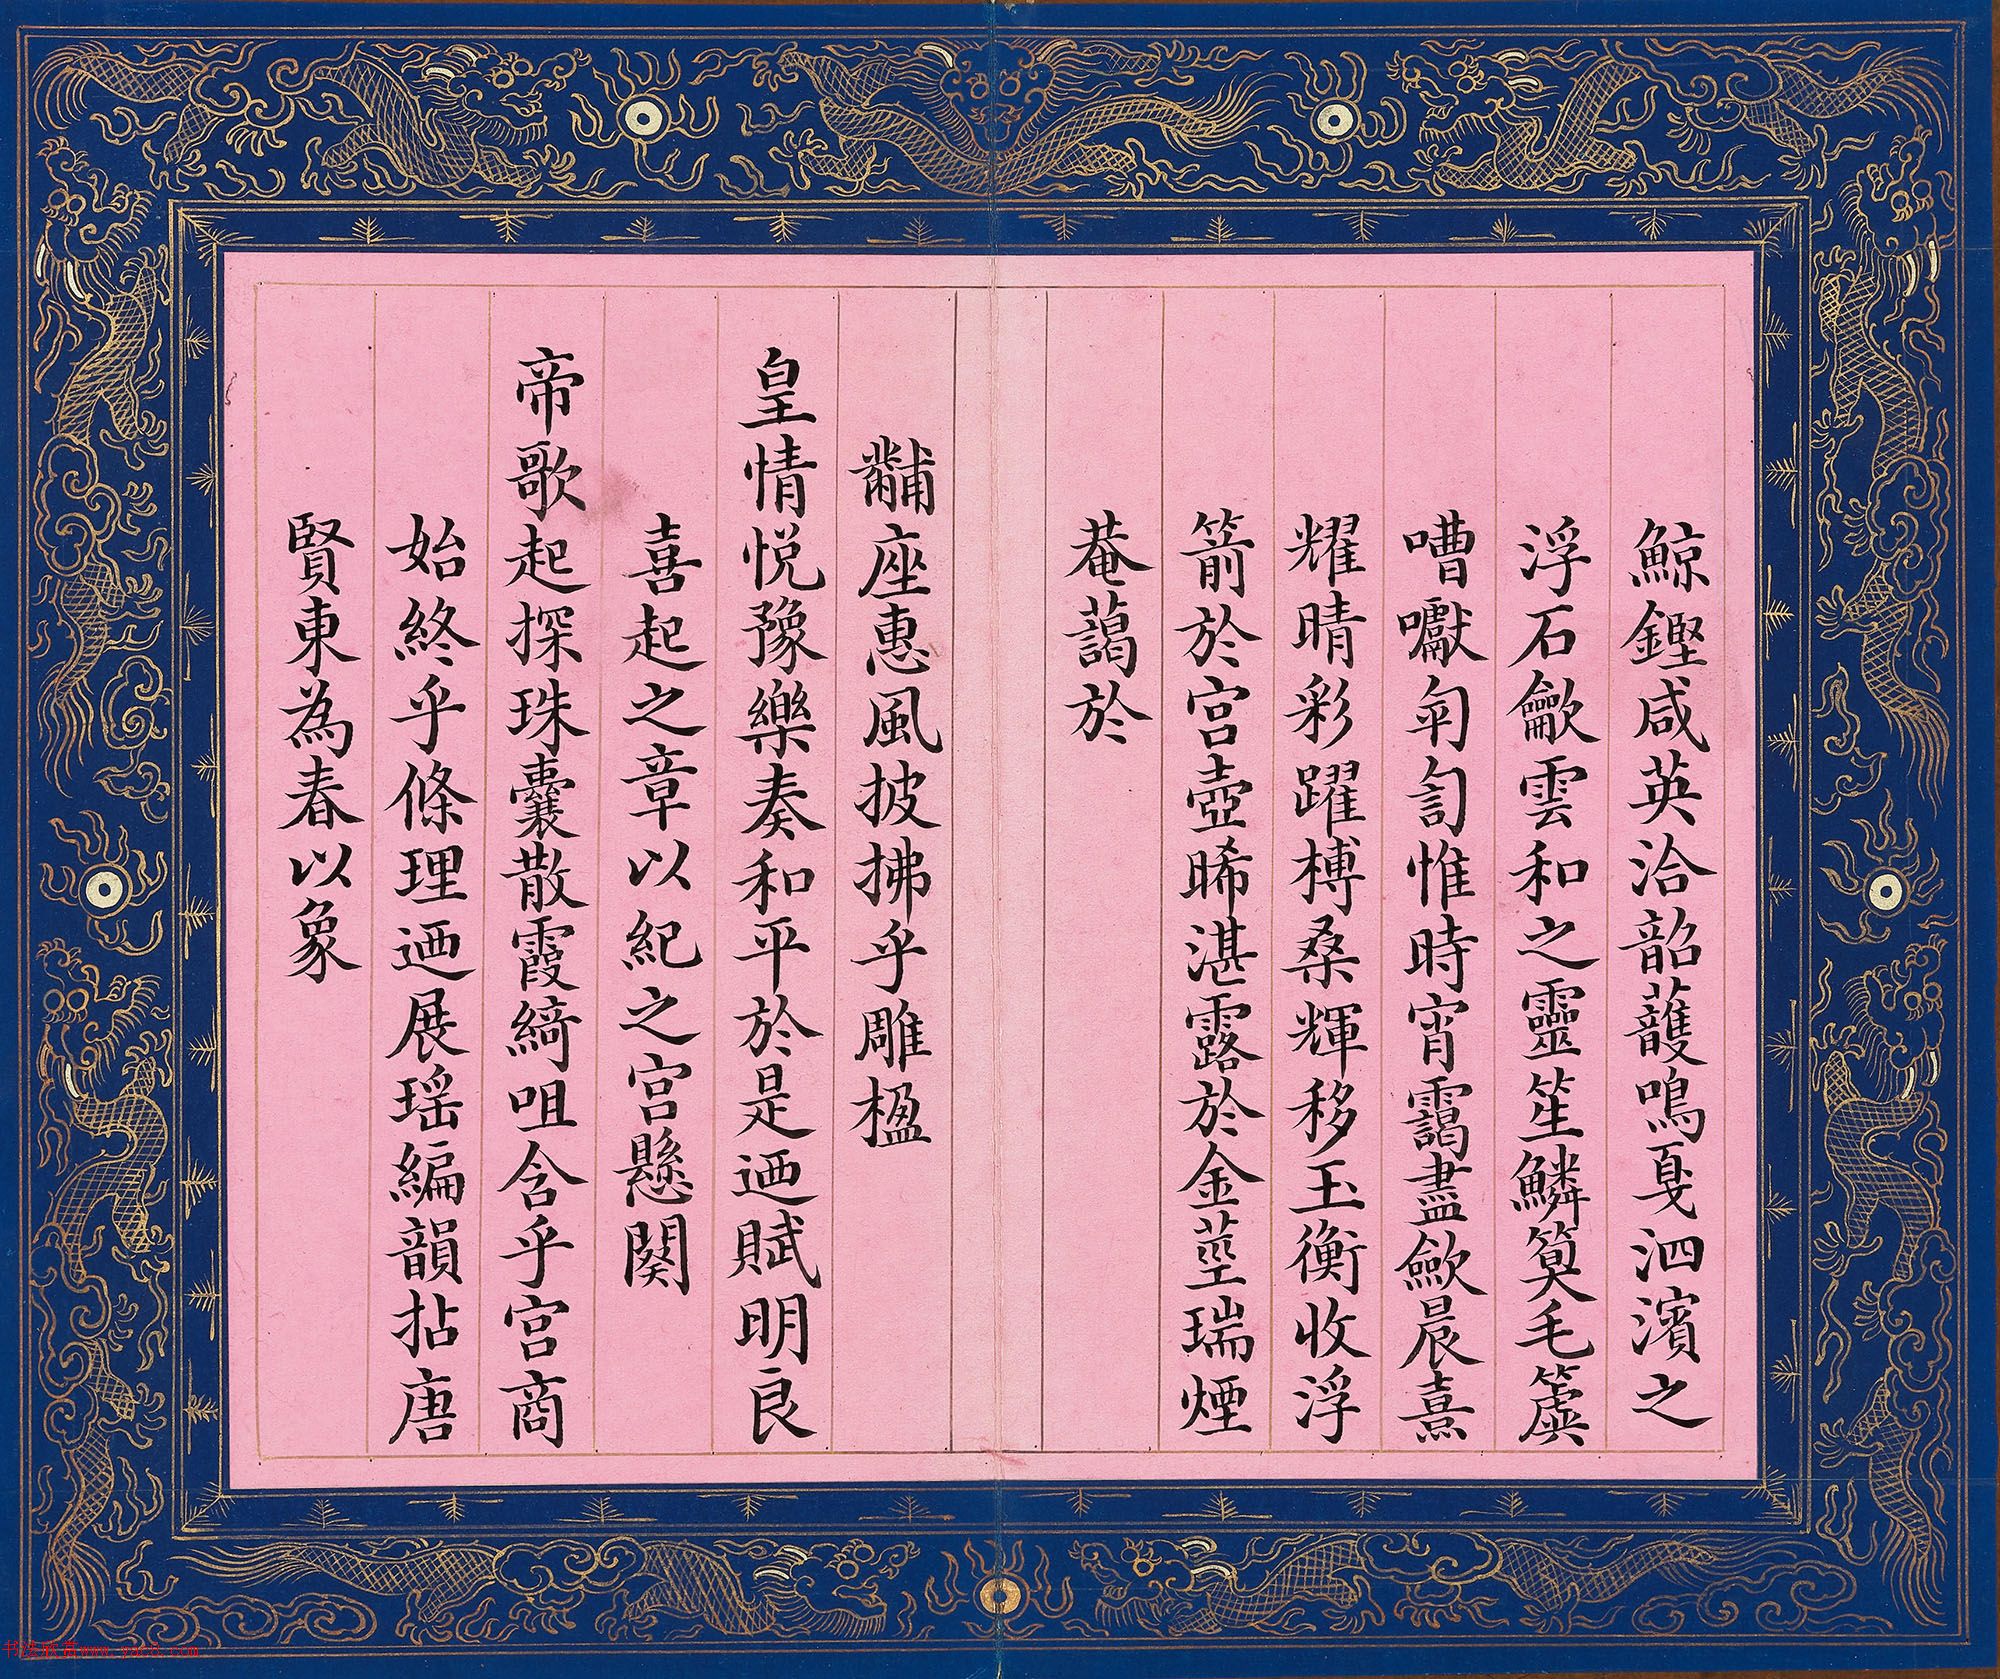 鯨鏗咸英洽韶頀鳴戛泗濱之
浮石龡雲和之靈笙鱗簨毛簴
嘈囐匉訇惟時宵靄盡歛晨熹
耀晴彩躍榑桑輝移玉衡收浮
箭於宮壺晞湛露於金莖瑞煙
菴藹於
黼座惠風披拂乎雕楹
皇情悅豫樂奏和平於是迺賦明良
喜起之章以紀之宮懸闋
帝歌起探珠囊散霞綺咀含乎宮商
始終乎條理迺展瑤編韻拈唐
賢東為春以象
书法欣赏www.yac8.com